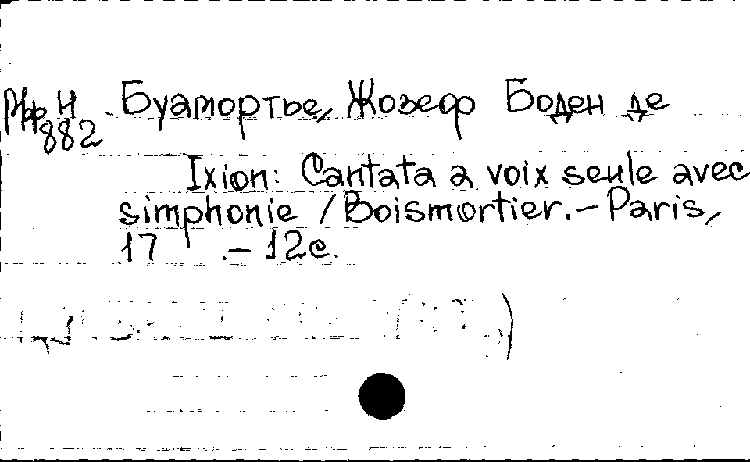 Буамортье, Жозеф Боден де
882
Ixion: Cantata a voix seule avec
simphonie / Boismortier. – Paris,
17 . – 12с.